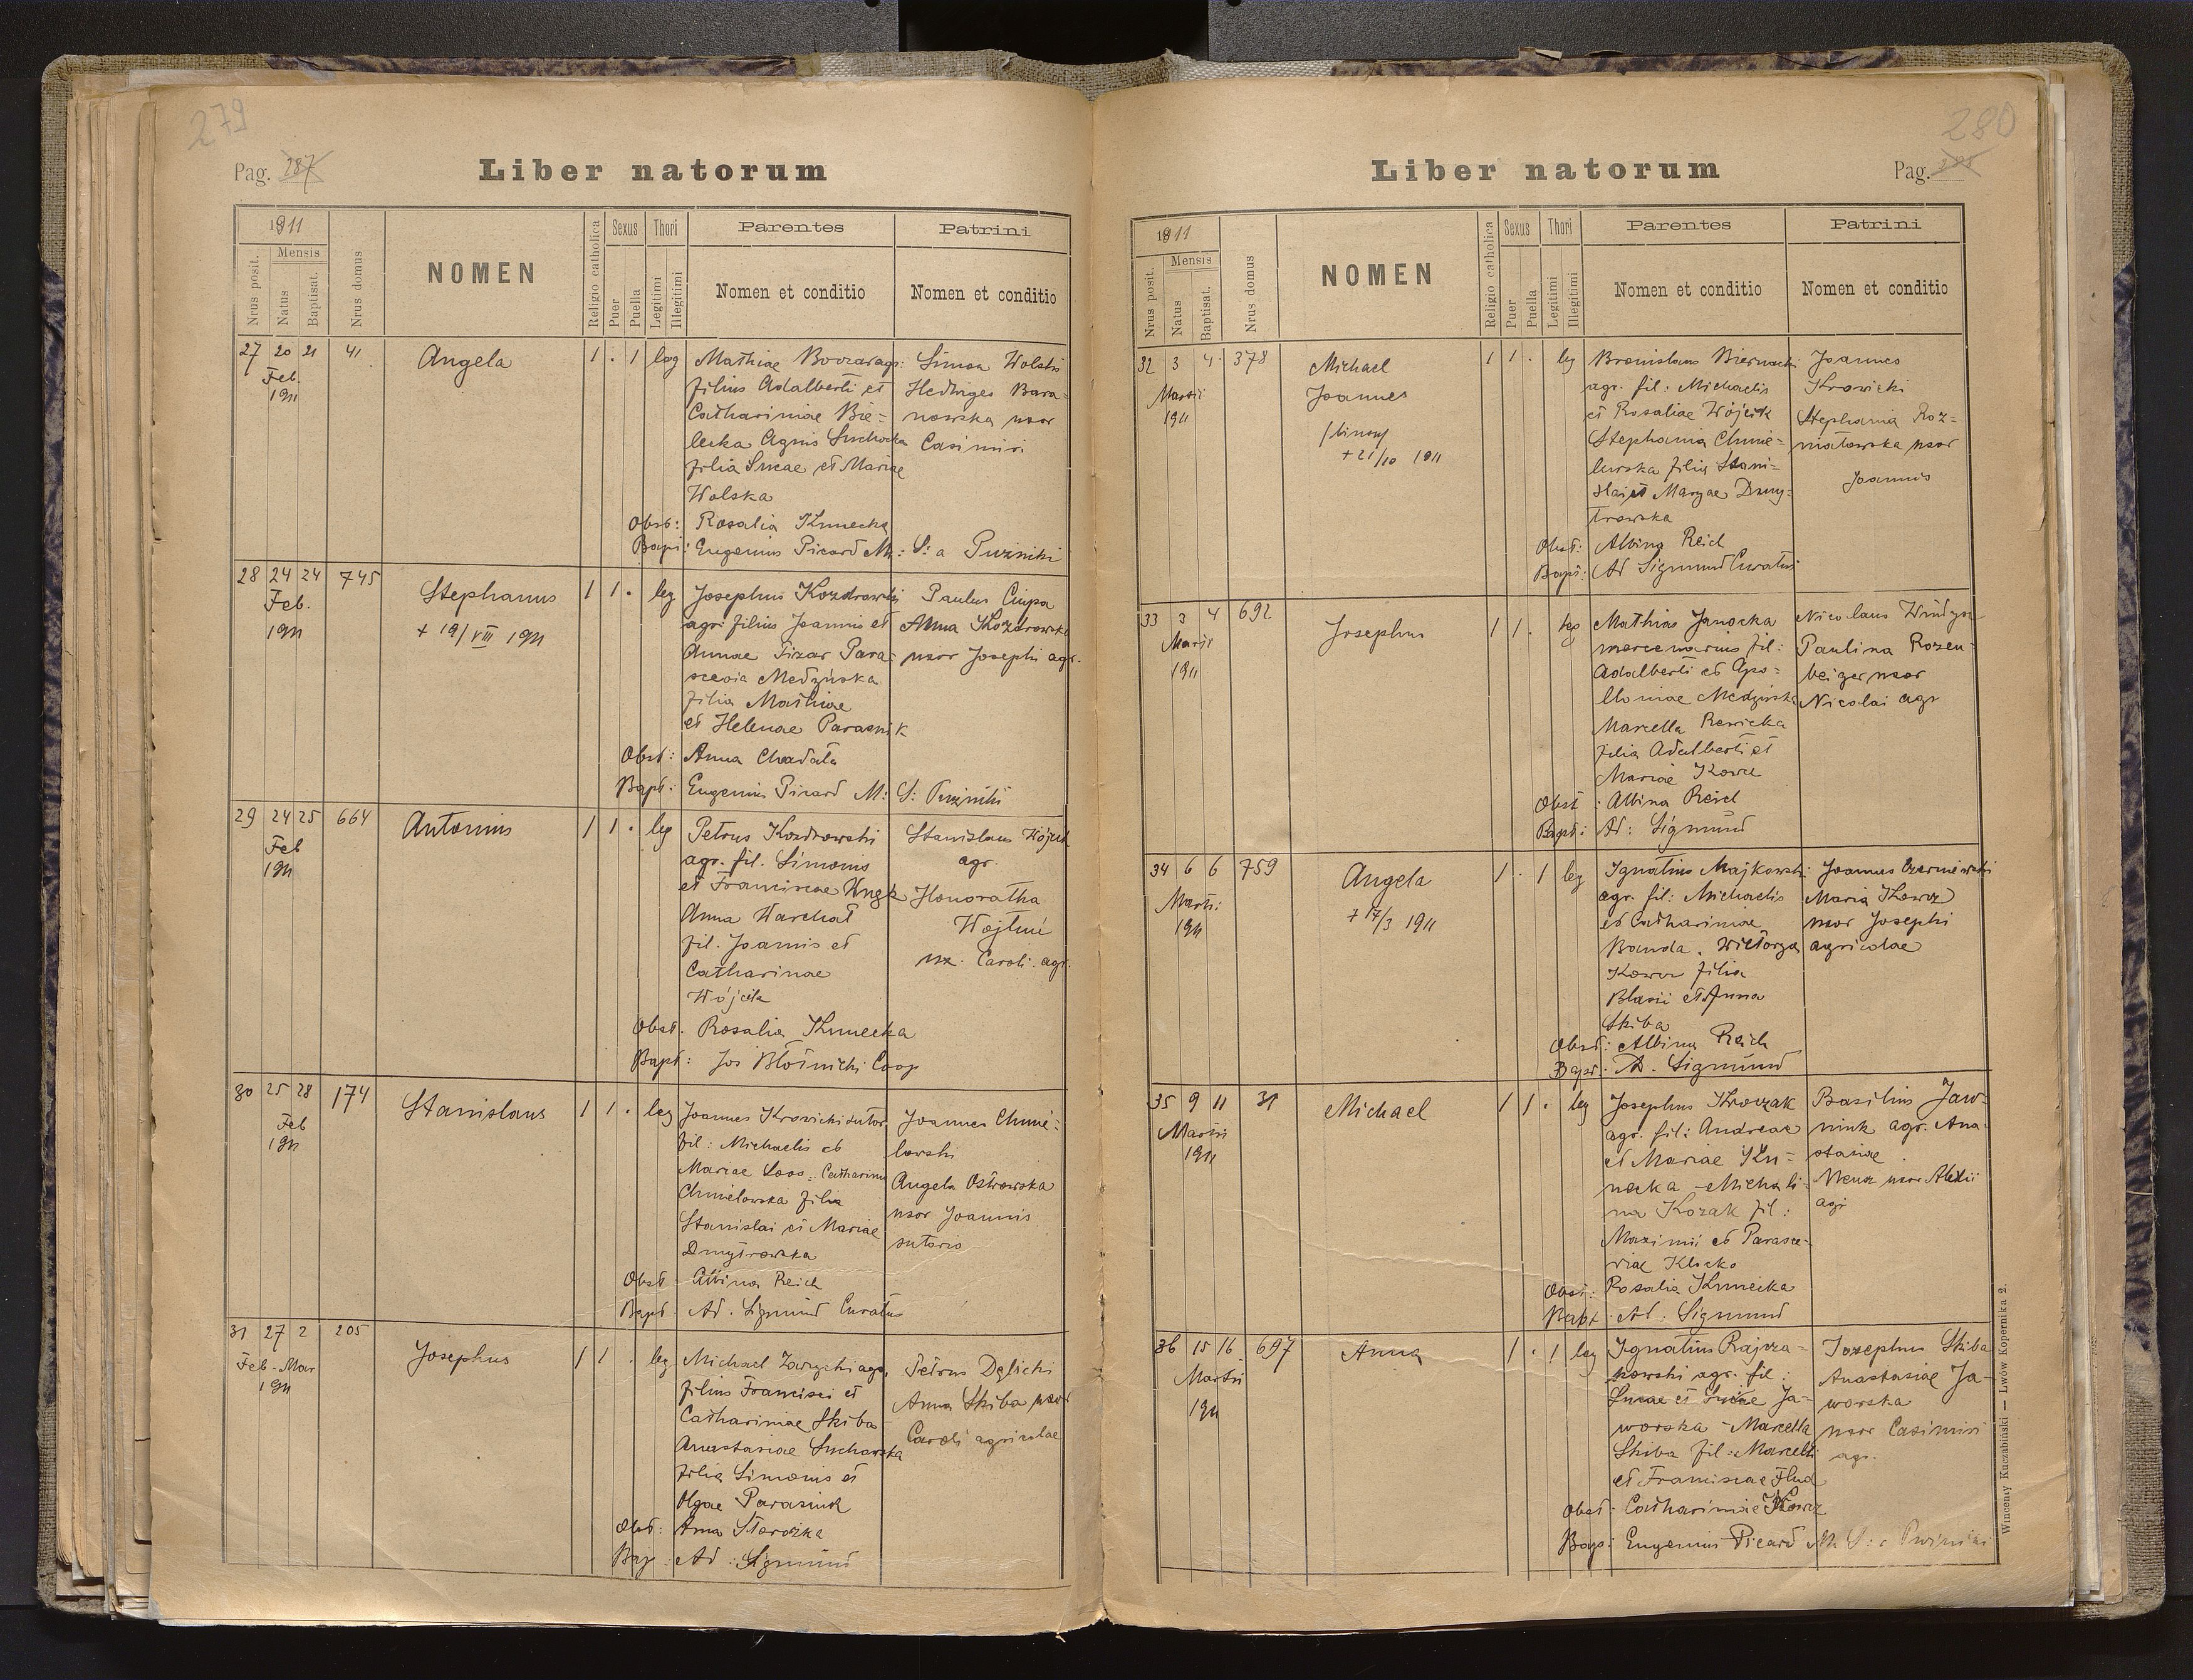 279
Pag. 287
Liber natorum
1911
Nrus posit.
Mensis
Natus
Baptisat.
Nrus domus
NOMEN
Religio catholica
Sexus
Puer
Puella
Thori
Legitimi
Illegitimi
Parentes
Nomen et conditio
Patrini
Nomen et conditio
27 20 21 41
Feb.
1911
Angela
1 . 1 leg
Mathiae agr:
filius Adalberti et
Catharinae Bie-
lecka Agnis Suchocka
filia Lucae et Mariae
Wolska
Simon Wolski
Hedviges Bara-
nowska uxor
Casimiri
Obst: Rosalia Kmecka
Bapt: Eugenius Picard M: S: a Puźniki
28 24 24 745
Feb.
1911
Stephanus
+ 19/VIII 1911
1 1 . leg
Josephus Kozdrowski
agr: filius Joannis et
Annae Pizar Para-
scevia Medzińska
filia Mathiae
et Helenae Parasnik
Paulus Ciupa
Anna Kozdrowska
uxor Josephi agr.
Obst: Anna Chadała
Bapt: Eugenius Picard M: S: Puźniki
29 24 25 664
Feb
1911
Antonius
1 1 . leg
Petrus Kozdrowski
agr. fil. Simonis
et Franciscae
Anna Warchał
fil. Joannis et
Catharinae
Wójcik
Stanislaus Wójcik
agr.
Honoratha
ux. Caroli agr.
Obst. Rosalia Kmecka
Bapt: Jos Błotnicki Coop
30 25 28 174
Feb
1911
Stanislaus
1 1 . leg
Joannes Krowicki sutor
fil: Michaelis et
Mariae Loos. Catharina
Chmielowska filia
Stanislai et Mariae
Dmytrowska
Joannes Chmie-
lowski
Angela Ostrowska
uxor Joannis
sutoris
Obst Albina Reich
Bapt. Ad. Sigmund Curatus
31 27 2 205
Feb - Mar
1911
Josephus
1 1 . leg
Michael Zarzycki agr.
filius Francisci et
Catharinae Skiba
Anastasiae Suchowska
filia Simonis et
Olgae Parasiuk
Petrus Delicki
Anna Skiba uxor
Caroli agricolae
Obst: Anna Storożka
Bap: Ad: Sigmund
280
Pag.
Liber natorum
1911
Nrus posit.
Mensis
Natus
Baptisat.
Nrus domus
NOMEN
Religio catholica
Sexus
Puer
Puella
Thori
Legitimi
Illegitimi
Parentes
Nomen et conditio
Patrini
Nomen et conditio
32 3 4 378
Martii
1911
Michael
Joannes
+ 21/10 1911
1 1 . leg
Bronislaus Biernacki
agr. fil: Michaelis
et Rosaliae Wójcik
Stephania Chmie-
lewska filia Stani-
slai et Maryae Dmy-
trowska
Joannes
Krowicki
Stephania Roz-
niatowska uxor
Joannis
Obst: Albina Reich
Bapt: Ad Sigmund Curatus
33 3 4 692
Martii
1911
Josephus
1 1 . leg
Mathias Janocka
mercenarius fil:
Adalberti et Apo-
lloniae Medzińska
Marcella Rewicka
filia Adalberti et
Mariae Kowcz
Nicolaus
Paulina Rozen-
beiger uxor
Nicolai agr
Obst: Albina Reich
Bapt: Ad: Sigmund
34 6 6 759
Martii
1911
Angela
+ 17/3 1911
1 . 1 leg
Ignatius Majkowski
agr. fil: Michaelis
et Catharinae
Banda. Wiktorya
Kowcz filia
Blasii et Anna
Skiba
Joannes Czerniewski
Maria Kowcz
uxor Josephi
agricolae
Obst: Albina Reich
Bapt: A. Sigmund
35 9 11 31
Martii
1911
Michael
1 1 . leg
Josephus Krowczak
agr. fil: Andreae
et Mariae Ku-
necka - Michali-
na Kozak fil:
Maximii et Parasce-
viae Klocko
Basilius Jaw-
nink agr. Ana-
stasiae
uxor Alexii
agr
Obst: Rosalia Kmecka
Bapt. Ad: Sigmund
36 15 16 697
Martii
1911
Anna
1 . 1 leg
Ignatius Rajcza-
kowski agr. fil:
Lucae et Luciae Ja-
worska - Marcella
Skiba fil: Marcelli
et Franciscae Flud
Josephus Skiba
Anastasiae Ja-
worska
uxor Casimiri
agr.
Obst: Catharinae Kowcz
Bap: Eugenius Picard M S: a Puźniki
Wincenty Kuczabiński — Lwów Kopernika 2.